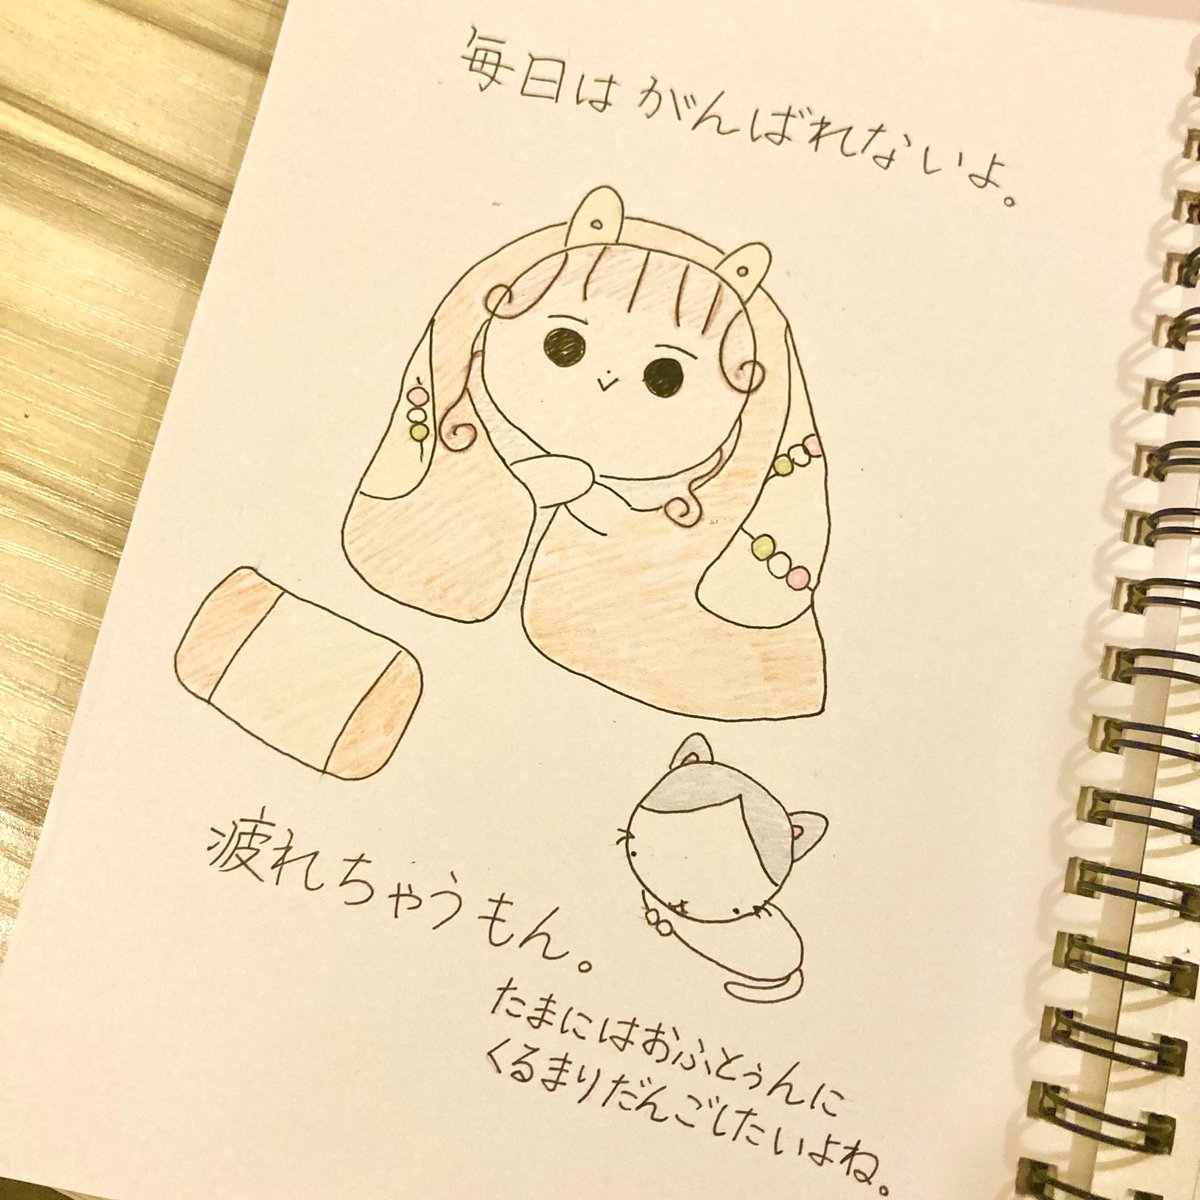 毎日はがんばれないよ。
疲れちゃうもん。
たまにはおふとぅんに
くるまりだんごしたいよね。